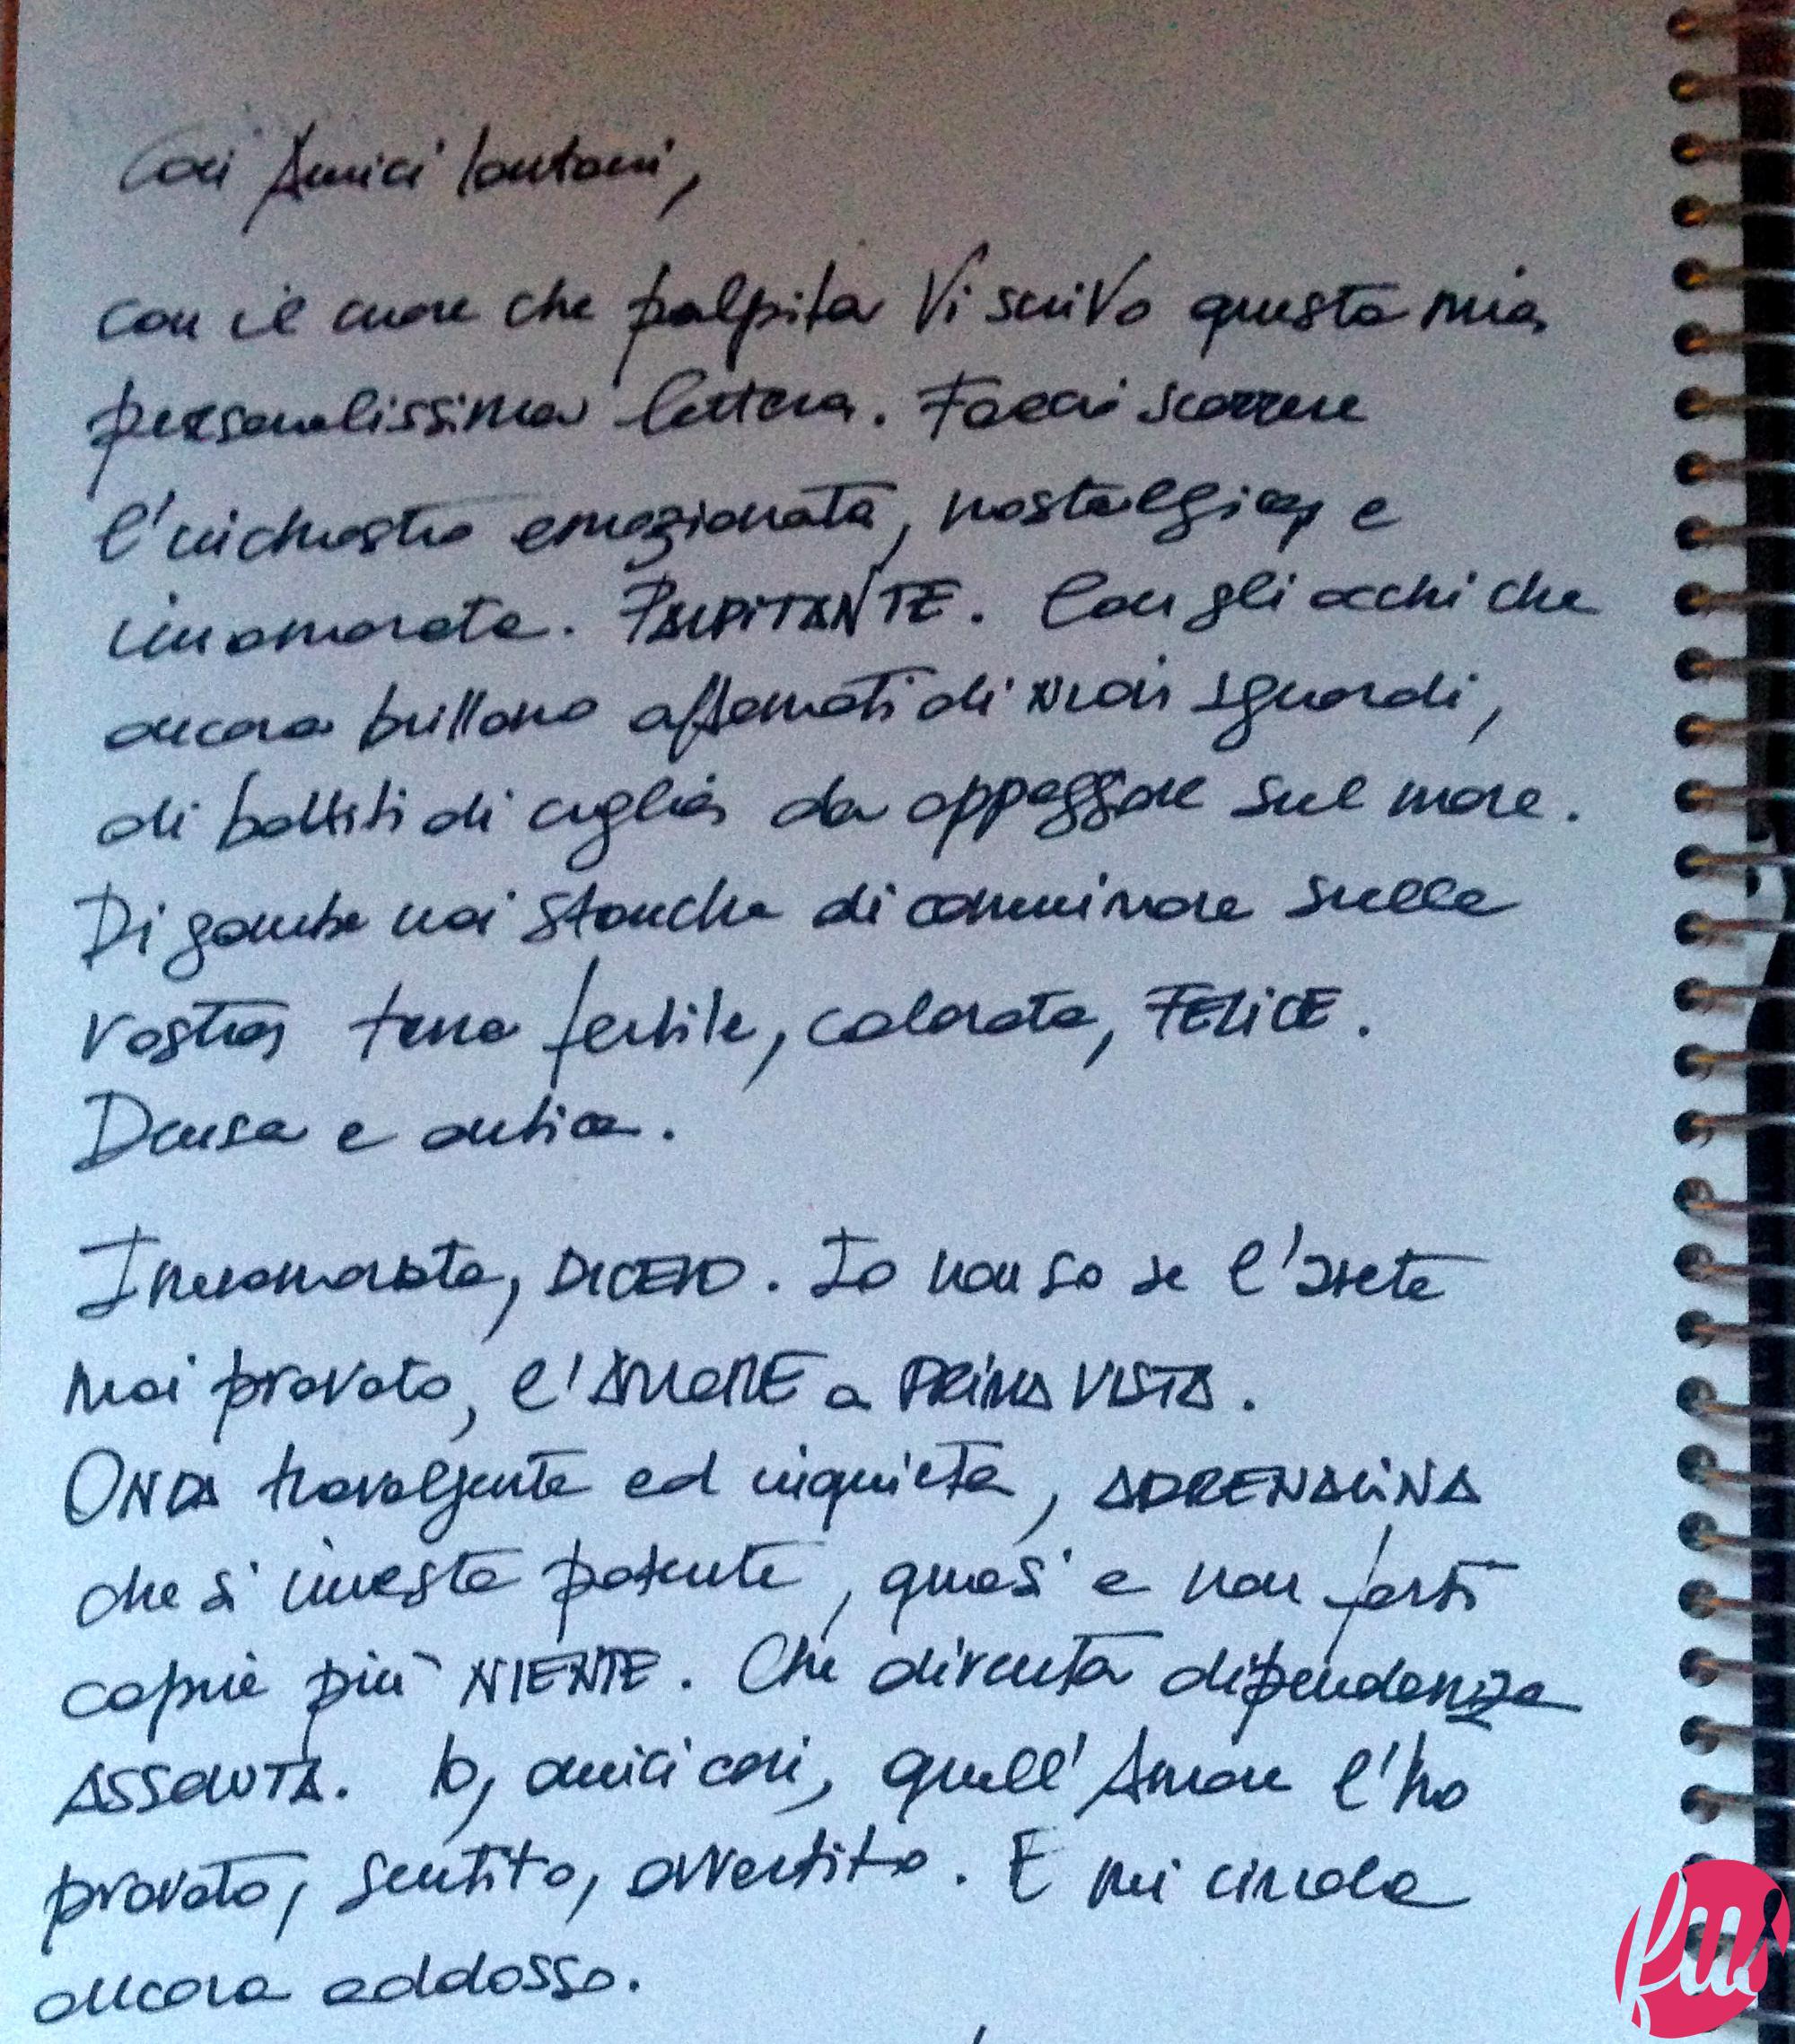 Cari Amici lontani,
con il cuore che palpita Vi scrivo questa mia
personalissima lettera. Faccio scorrere
l'inchiostro emozionata, nostalgica e
innamorata. PALPITANTE. Con gli occhi che
ancora brillano affamati di nuovi sguardi,
di battiti di ciglia da appoggiare sul mare.
Di gambe mai stanche di camminare sulla
vostra terra fertile, colorata, FELICE.
Densa e antica.
Innamorata, DICEVO. Io non so se l'avete
mai provato, l'AMORE a PRIMA VISTA.
ONDA travolgente ed inquieta, ADRENALINA
che si investe potente, quasi a non farti
capire più NIENTE. Che diventa dipendenza
ASSOLUTA. Io, amici cari, quell'Amore l'ho
provato, sentito, avvertito. E mi circola
ancora addosso.
fui